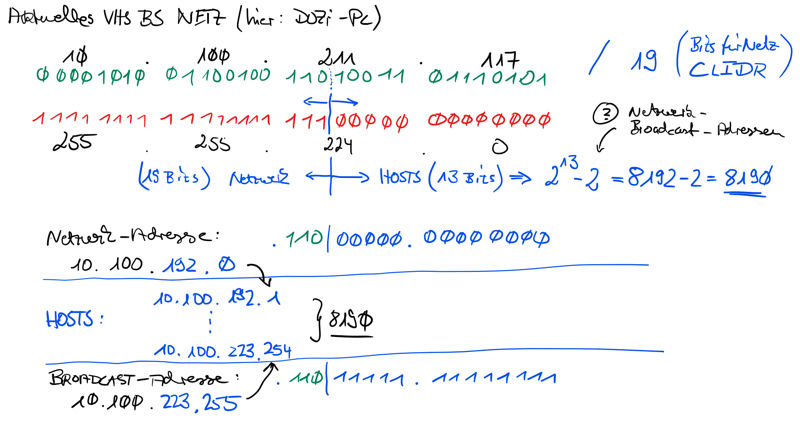 Aktuelles VHS BS NETZ (hier: DOZi-PC)
10 . 100 . 211 . 117 / 19 (Bits für Netz
00001010 01100100 11010011 01110101 CLIDR)
11111111 11111111 11100000 00000000
255 . 255 . 224 . 0
② Netzwerk-
Broadcast-Adressen
(19 Bits) Netzwerk ↔ HOSTS (13 Bits) ⇒ 2^13-2 = 8192-2 = 8190
Netzwerk-Adresse: . 110|00000.00000000
10. 100. 192. 0
10.100. 192. 1
HOSTS: } 8190
10.100. 223.254
BROADCAST-Adresse: . 110|11111 . 11111111
10.100. 223.255